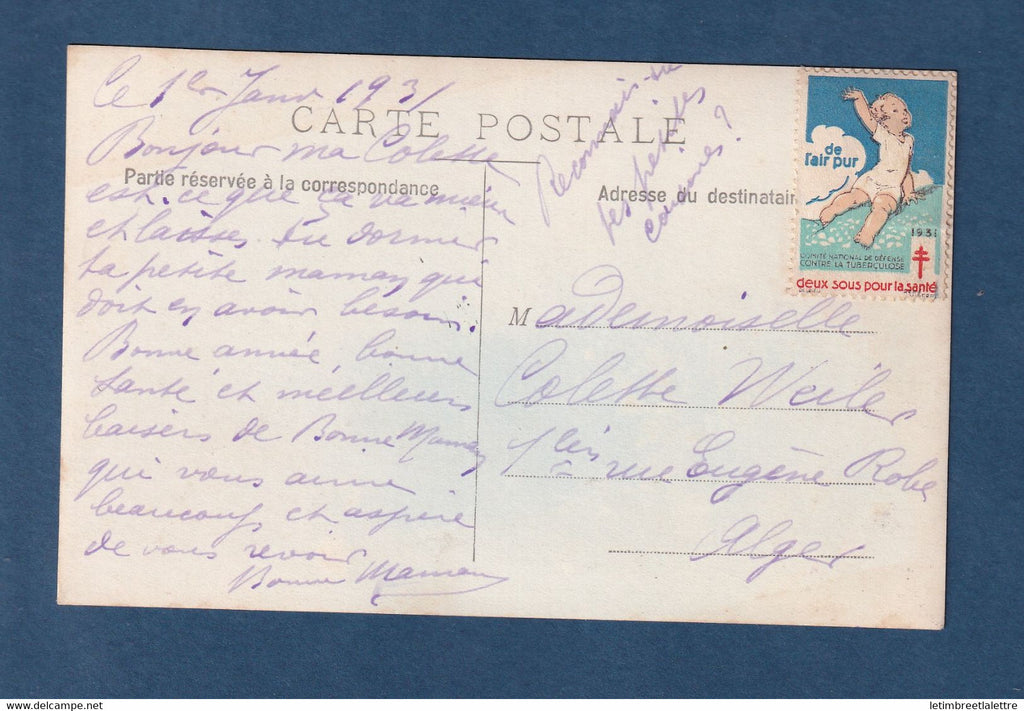 Le 1er Janv 1931
CARTE POSTALE
Bonjour ma Colette
Partie réservée à la correspondance
est-ce que ça va mieux
et laisses tu dormir
ta petite maman qui
doit en avoir besoin.
Bonne année bonne
santé et meilleurs
baisers de Bonne Maman
qui vous aime
beaucoup et aspire
de vous revoir
Bonne Maman
Reconnais-tu
tes petites
?
Adresse du destinatair
de
l'air pur
1931
COMITÉ NATIONAL DE DÉFENSE
CONTRE LA TUBERCULOSE
deux sous pour la santé
Mademoiselle
Colette Weiler
1 bis rue Eugène Robe
Alger
delcampe.net
letimbreetlalettre